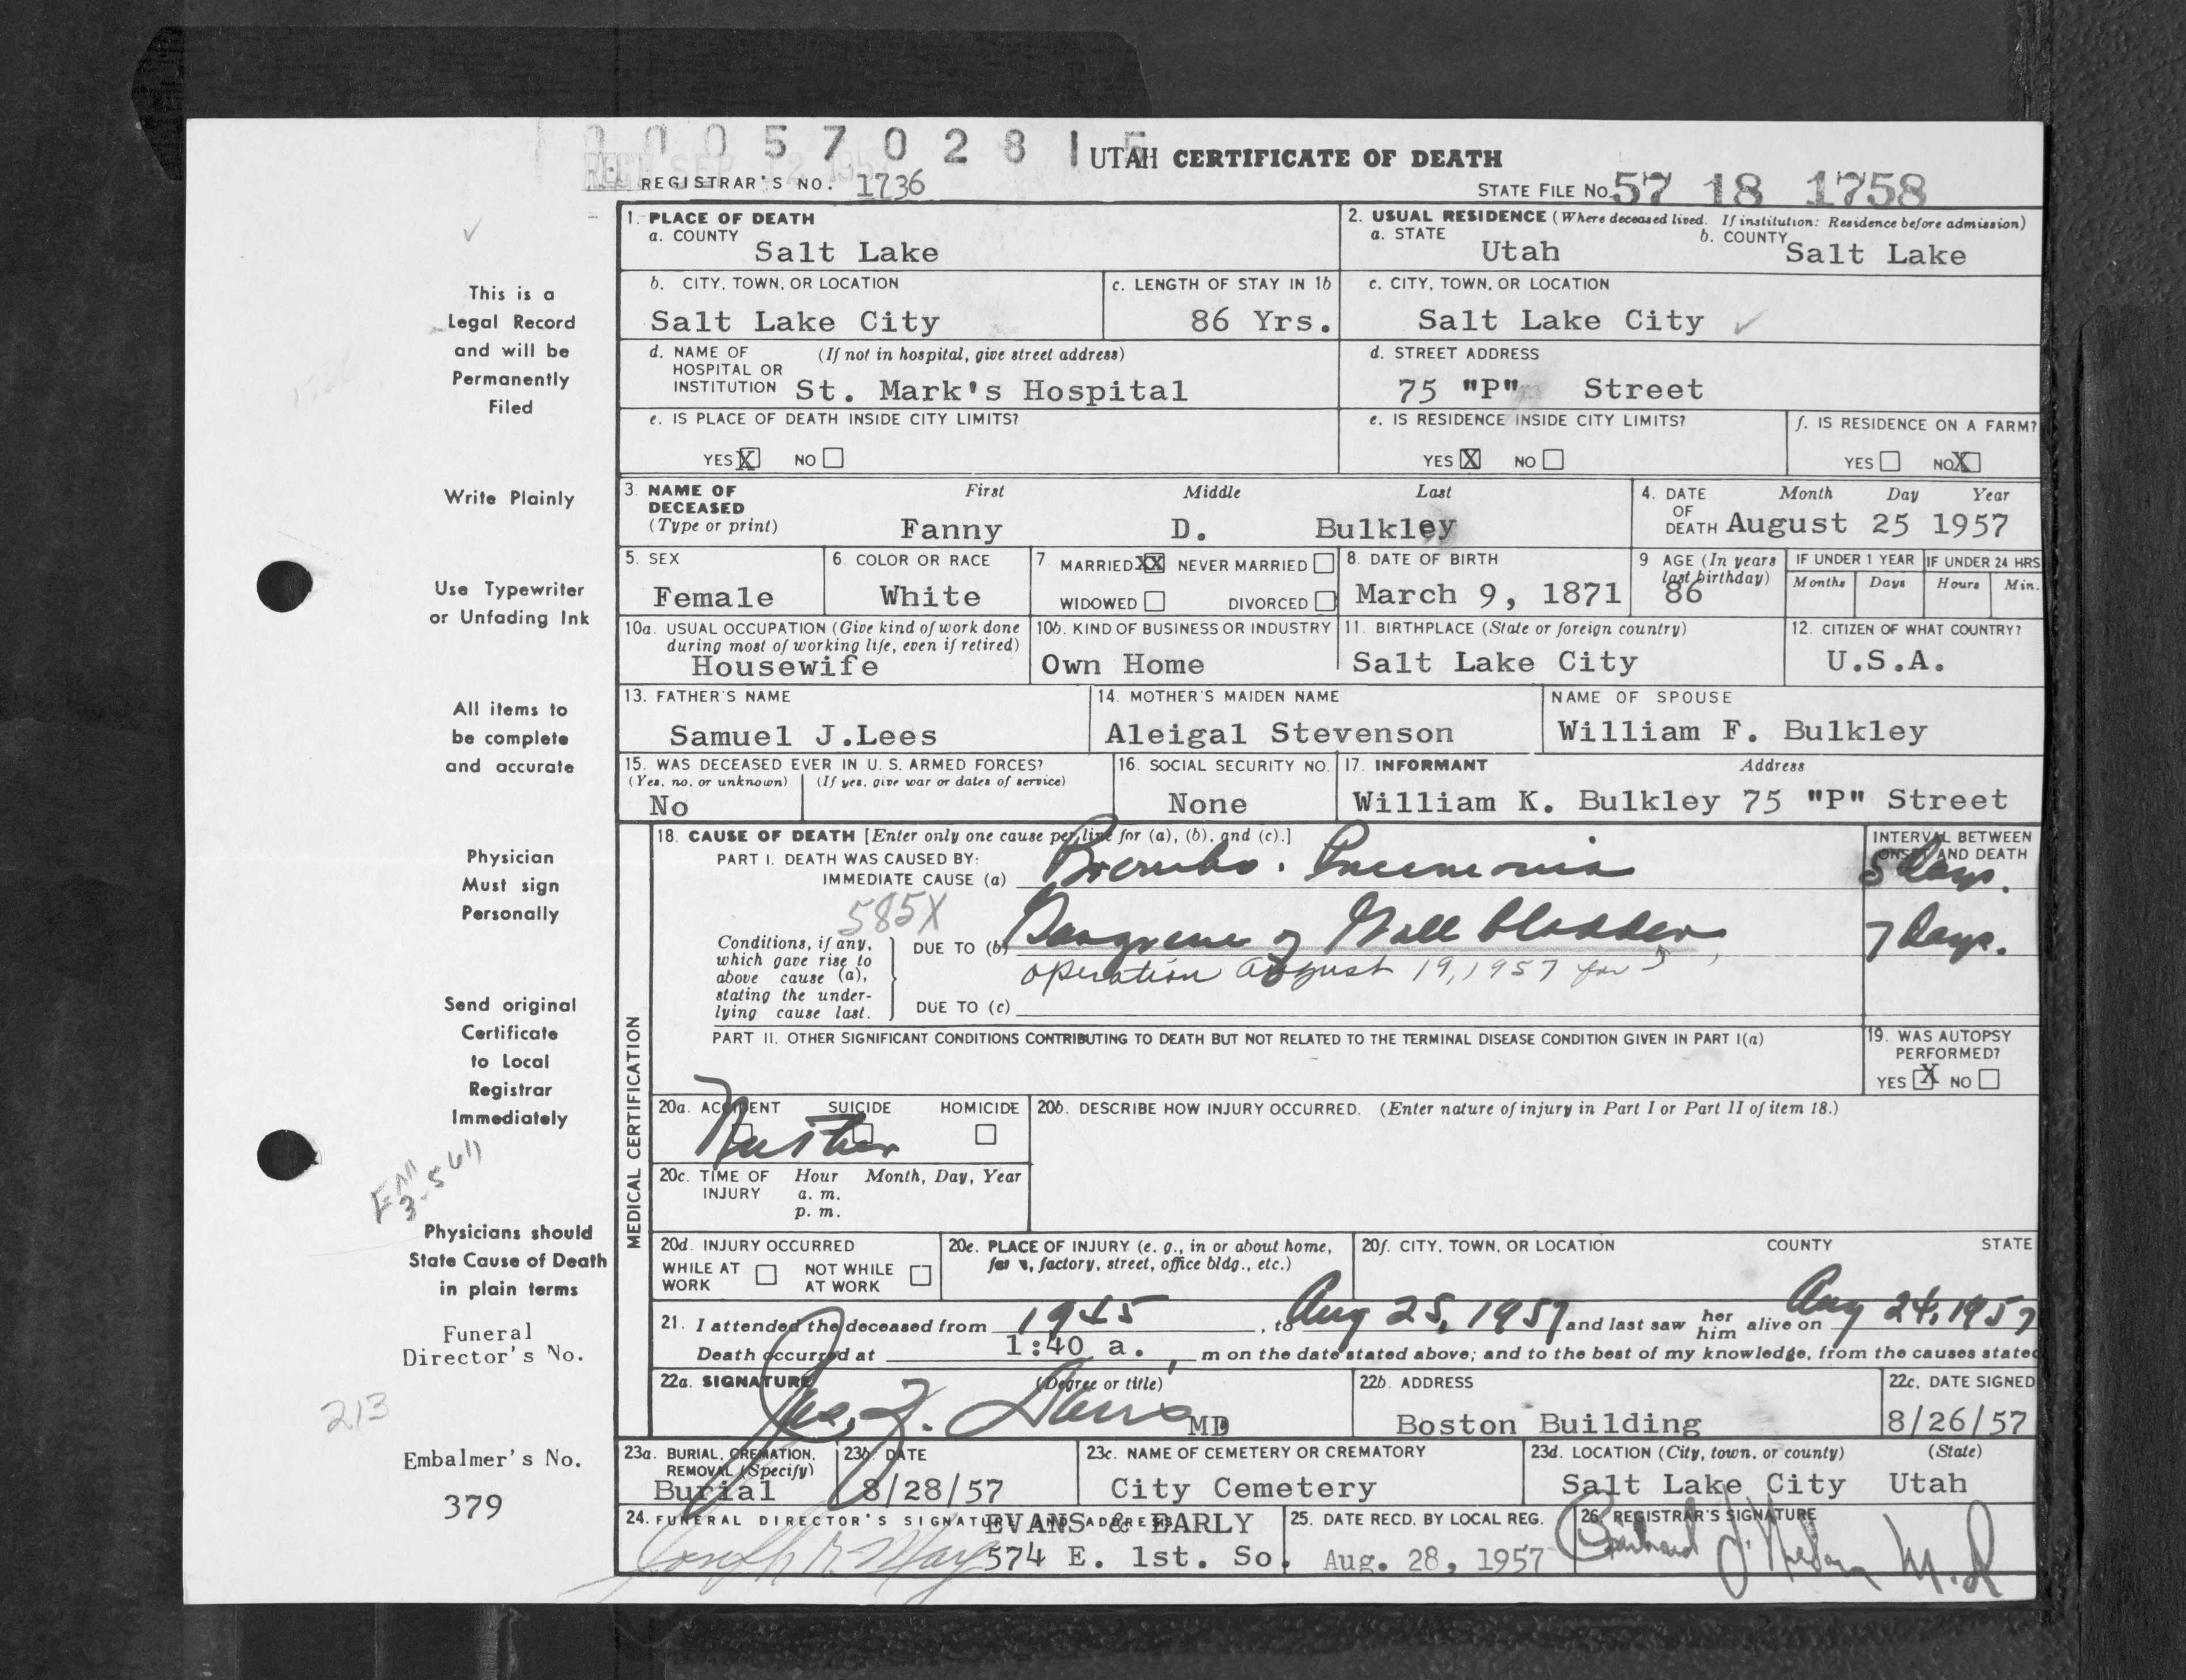 0 0 0 5 7 0 2 8 1 5
UTAH CERTIFICATE OF DEATH
REC'D SEP 12 1957
REGISTRAR'S NO. 1736
STATE FILE NO. 57 18 1758
1. PLACE OF DEATH
a. COUNTY Salt Lake
2. USUAL RESIDENCE (Where deceased lived. If institution: Residence before admission)
a. STATE Utah b. COUNTY Salt Lake
b. CITY, TOWN, OR LOCATION Salt Lake City
c. LENGTH OF STAY IN 1b 86 Yrs.
c. CITY, TOWN, OR LOCATION Salt Lake City
This is a
Legal Record
and will be
Permanently
Filed
d. NAME OF HOSPITAL OR INSTITUTION (If not in hospital, give street address) St. Mark's Hospital
d. STREET ADDRESS 75 "P" Street
e. IS PLACE OF DEATH INSIDE CITY LIMITS?
YES X NO
e. IS RESIDENCE INSIDE CITY LIMITS?
YES X NO
f. IS RESIDENCE ON A FARM?
YES NO X
Write Plainly
3. NAME OF DECEASED (Type or print) First Middle Last
Fanny D. Bulkley
4. DATE OF DEATH Month Day Year
August 25 1957
Use Typewriter
or Unfading Ink
5. SEX Female
6. COLOR OR RACE White
7. MARRIED XX NEVER MARRIED
WIDOWED DIVORCED
8. DATE OF BIRTH March 9, 1871
9 AGE (In years last birthday) 86
IF UNDER 1 YEAR Months Days
IF UNDER 24 HRS Hours Min.
10a. USUAL OCCUPATION (Give kind of work done during most of working life, even if retired) Housewife
10b. KIND OF BUSINESS OR INDUSTRY Own Home
11. BIRTHPLACE (State or foreign country) Salt Lake City
12. CITIZEN OF WHAT COUNTRY? U.S.A.
All items to
be complete
and accurate
13. FATHER'S NAME Samuel J.Lees
14. MOTHER'S MAIDEN NAME Aleigal Stevenson
NAME OF SPOUSE William F. Bulkley
15. WAS DECEASED EVER IN U. S. ARMED FORCES?
(Yes, no, or unknown) (If yes, give war or dates of service)
No
16. SOCIAL SECURITY NO. None
17. INFORMANT Address
William K. Bulkley 75 "P" Street
Physician
Must sign
Personally
MEDICAL CERTIFICATION
18. CAUSE OF DEATH [Enter only one cause per line for (a), (b), and (c).]
INTERVAL BETWEEN ONSET AND DEATH
PART I. DEATH WAS CAUSED BY:
IMMEDIATE CAUSE (a) Broncho. Pneumonia 5 Days.
585X
Conditions, if any, which gave rise to above cause (a), stating the underlying cause last.
DUE TO (b) Gangrene of Gall bladder 7 Days.
operation August 19, 1957 for
DUE TO (c)
Send original
Certificate
to Local
Registrar
Immediately
PART II. OTHER SIGNIFICANT CONDITIONS CONTRIBUTING TO DEATH BUT NOT RELATED TO THE TERMINAL DISEASE CONDITION GIVEN IN PART I(a)
19. WAS AUTOPSY PERFORMED?
YES X NO
20a. ACCIDENT SUICIDE HOMICIDE
Neither
20b. DESCRIBE HOW INJURY OCCURRED. (Enter nature of injury in Part I or Part II of item 18.)
20c. TIME OF INJURY Hour Month, Day, Year
a. m.
p. m.
Physicians should
State Cause of Death
in plain terms
20d. INJURY OCCURRED
WHILE AT WORK NOT WHILE AT WORK
20e. PLACE OF INJURY (e. g., in or about home, farm, factory, street, office bldg., etc.)
20f. CITY, TOWN, OR LOCATION COUNTY STATE
21. I attended the deceased from 1945, to Aug 25, 1957 and last saw her him alive on Aug 24, 1957
Death occurred at 1:40 a. m on the date stated above; and to the best of my knowledge, from the causes stated
Funeral
Director's No.
213
22a. SIGNATURE (Degree or title)
Jas. Z. Davis MD
22b. ADDRESS Boston Building
22c. DATE SIGNED 8/26/57
Embalmer's No.
379
23a. BURIAL, CREMATION, REMOVAL (Specify) Burial
23b. DATE 8/28/57
23c. NAME OF CEMETERY OR CREMATORY City Cemetery
23d. LOCATION (City, town, or county) (State)
Salt Lake City Utah
24. FUNERAL DIRECTOR'S SIGNATURE AND ADDRESS
EVANS & EARLY
574 E. 1st. So.
25. DATE RECD. BY LOCAL REG. Aug. 28, 1957
26. REGISTRAR'S SIGNATURE
M.D